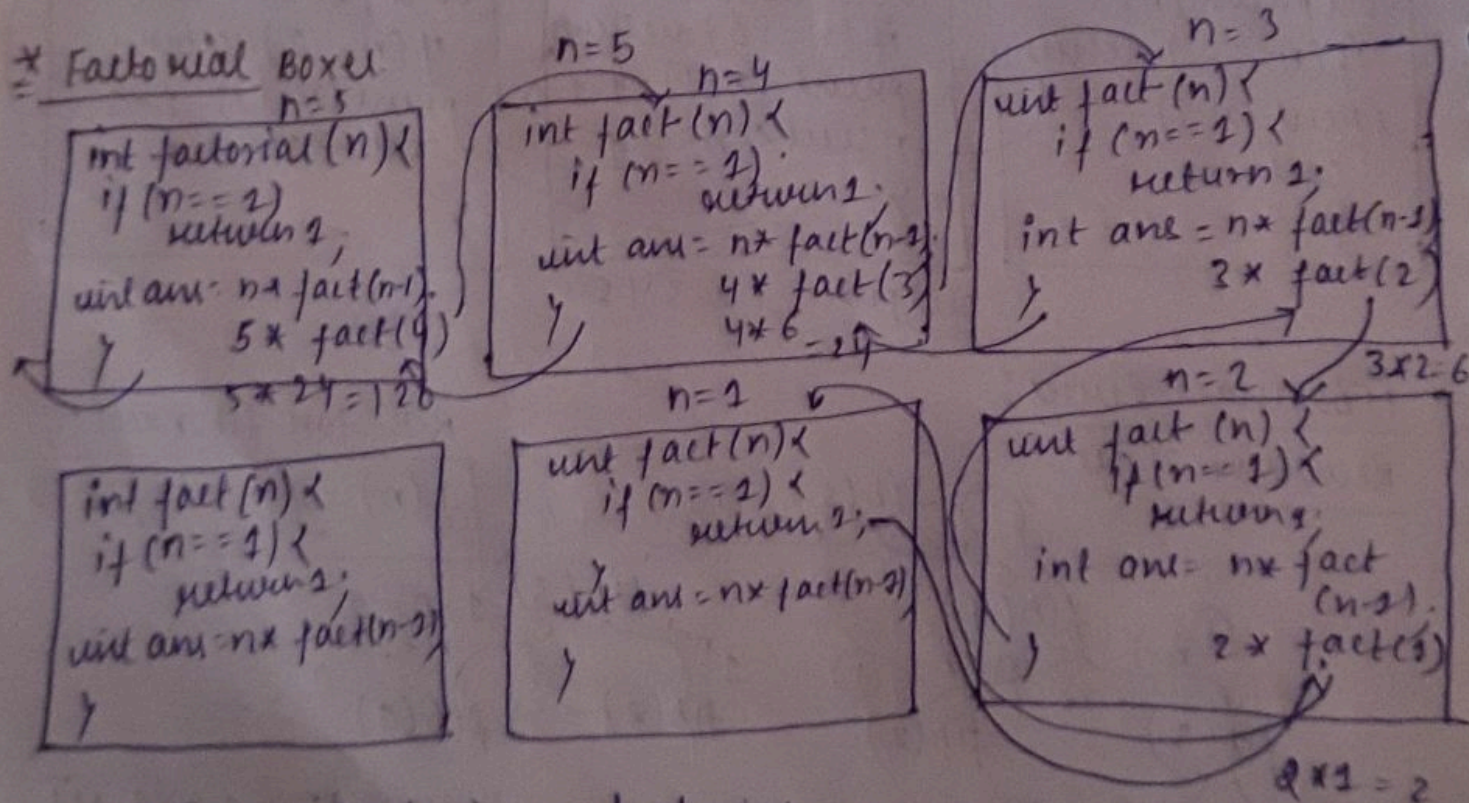 * Factorial Boxes
n=5
int factorial(n){
if (n==1)
return 1;
int ans = n* fact(n-1).
5* fact(4)
}
5*24=120
n=5
n=4
int fact(n){
if (n==1).
return 1;
int ans = n* fact(n-1).
4* fact(3)
}
4*6
=24
n=3
int fact(n){
if (n==1){
return 1;
int ans = n* fact(n-1)
3* fact(2)
}
3*2=6
n=2
int fact (n) {
if(n==1){
return 1;
int ans = n* fact
(n-1).
2* fact(1)
}
2*1=2
n=1
int fact(n){
if (n==1){
return 1;
}
int ans = n* fact(n-1)
}
int fact(n){
if (n==1){
return 1;
int ans=n* fact(n-1)
}